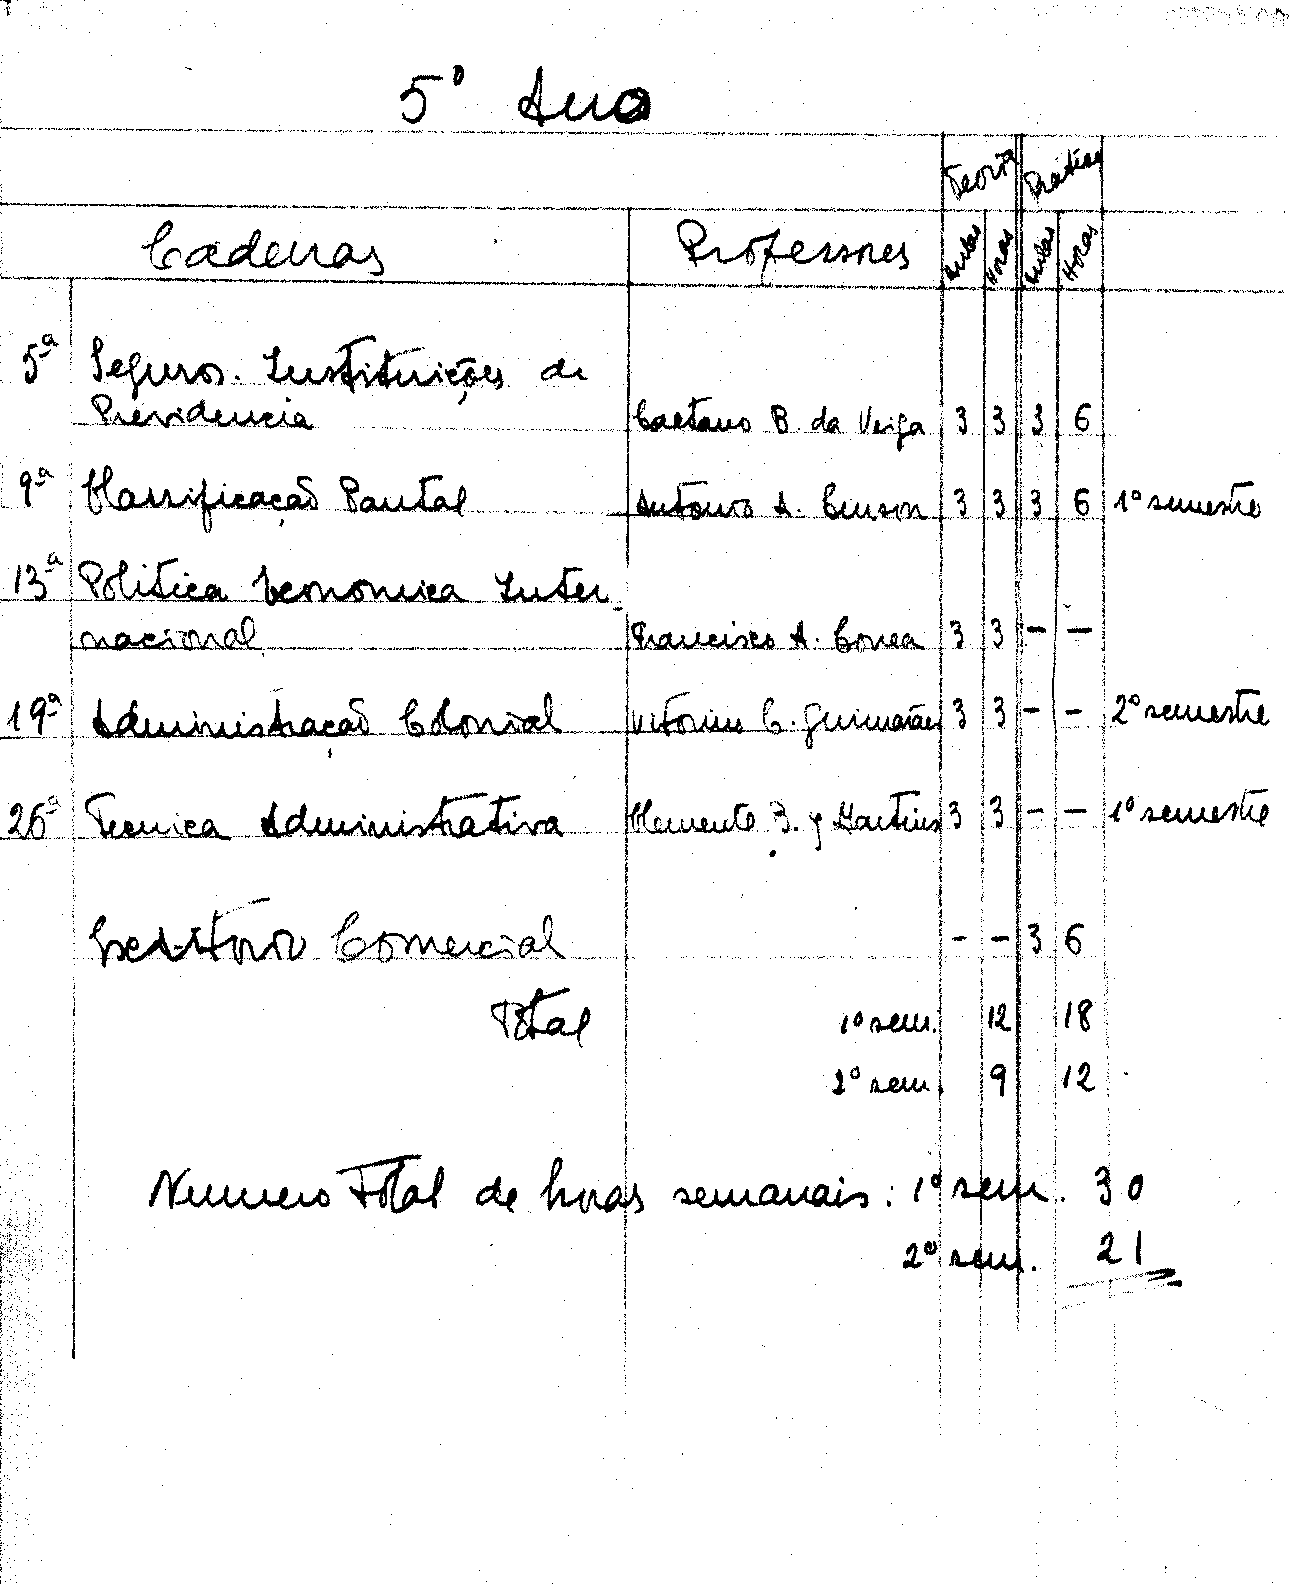 5º Ano
Teoria Prática
Cadeiras Professores Aulas Horas Aulas Horas
5ª Seguros. Instituições de
Previdencia Caetano B. da Veiga 3 3 3 6
9ª Classificação Pautal Antonio A. 3 3 3 6 1º semestre
13ª Politica Economica Inter-
nacional Francisco A. Correa 3 3 - -
19ª Administração Colonial Vitorino C. Guimarães 3 3 - - 2º semestre
26ª Tecnica Administrativa Clemente 3 3 - - 1º semestre
Escritorio Comercial - - 3 6
Total 1º sem. 12 18
2º sem. 9 12
Numero Total de horas semanais: 1º sem. 30
2º sem. 21